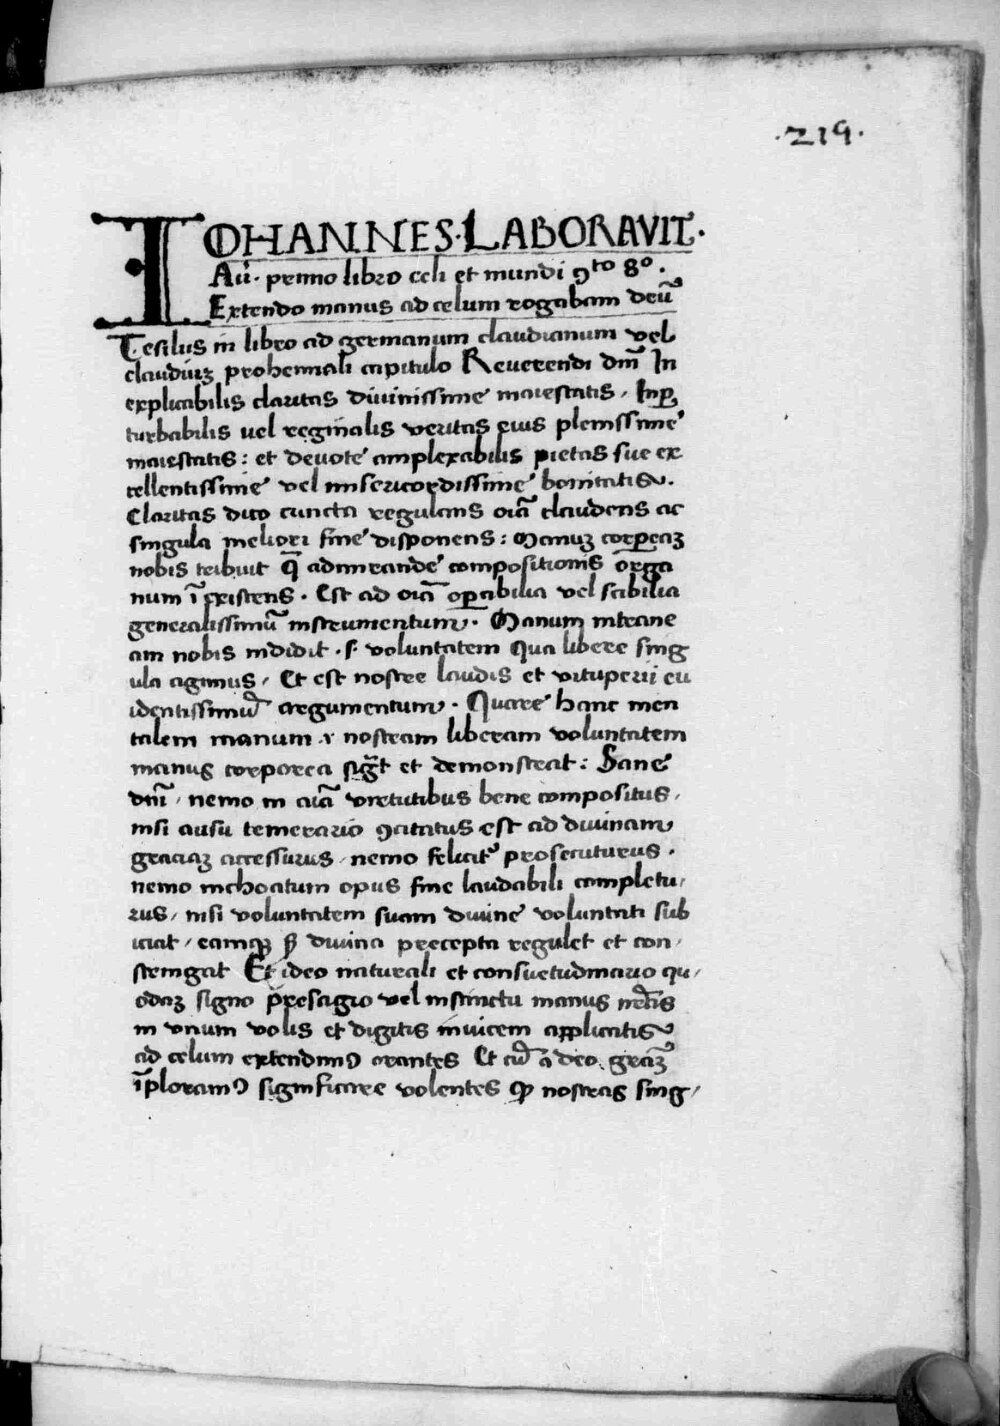 ·219·
IOHANNES·LABORAVIT·
Au̅· primo libro celi et mundi ꝯto 8o·
Extendo manus ad celum rogabam deu̅
Tesilus in libro ad germanum claudianum vel
claudiuȝ prohemiali capitulo Reverendi dm̅ In
explicabilis claritas divinissime maiestatis, Inꝑ
turbabilis vel reginalis veritas eius plenissime
maiestatis: et devote amplexabilis pietas sue ex
cellentissime vel misericordissime bonitatis.
Claritas dico cuncta regulans oia̅ claudens ac
singula meliori fine disponens: Manuȝ corꝑeaȝ
nobis tribuit q̅ admirande compositionis orga
num i̅ existens. Est ad oia̅ oꝑabilia vel scibilia
generalissimu̅ instrumentum. Manum intrane
am nobis indidit .s. voluntatem Qua libere sing
ula agimus, Et est nostre laudis et vituperii eu
identissimu̅ argumentum. Quare hanc men
talem manum .i. nostram liberam voluntatem
manus corporea sig̅t et demonstrat: Sane
dm̅, nemo in aia̅ virtutibus bene compositus,
nisi ausu temerario ꝯcitatus est ad divinam
graciaȝ accessurus, nemo felicit̉ prosecuturus.
nemo inchoatum opus fine laudabili completu,
rus, nisi voluntatem suam divine voluntati sub
iciat, eamqȝ ꝑ divina precepta regulet et con,
stringat Et ideo naturali et consuetudinario qu,
odaȝ signo presagio vel instinctu manus nr̅is
in unum volis et digitis invicem applicatis
ad celum extendimꝰ orantes Et cu̅ a deo gra̅ȝ
i̅ploramꝰ significare volentes qȝ nostras sing,